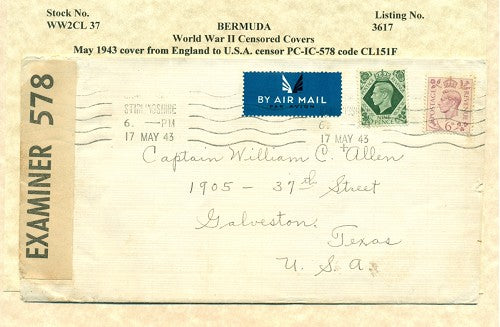 Stock No.
WW2CL 37
BERMUDA
World War II Censored Covers
May 1943 cover from England to U.S.A. censor PC-IC-578 code CL151F
Listing No.
3617
EXAMINER 578
BY AIR MAIL
PAR AVION
NINE
PENCE
POSTAGE
REVENUE
6D
6. - PM
17 MAY 43
6.
17 MAY 43
Captain William C. Allen
1905 - 37th Street
Galveston, Texas
U. S. A.